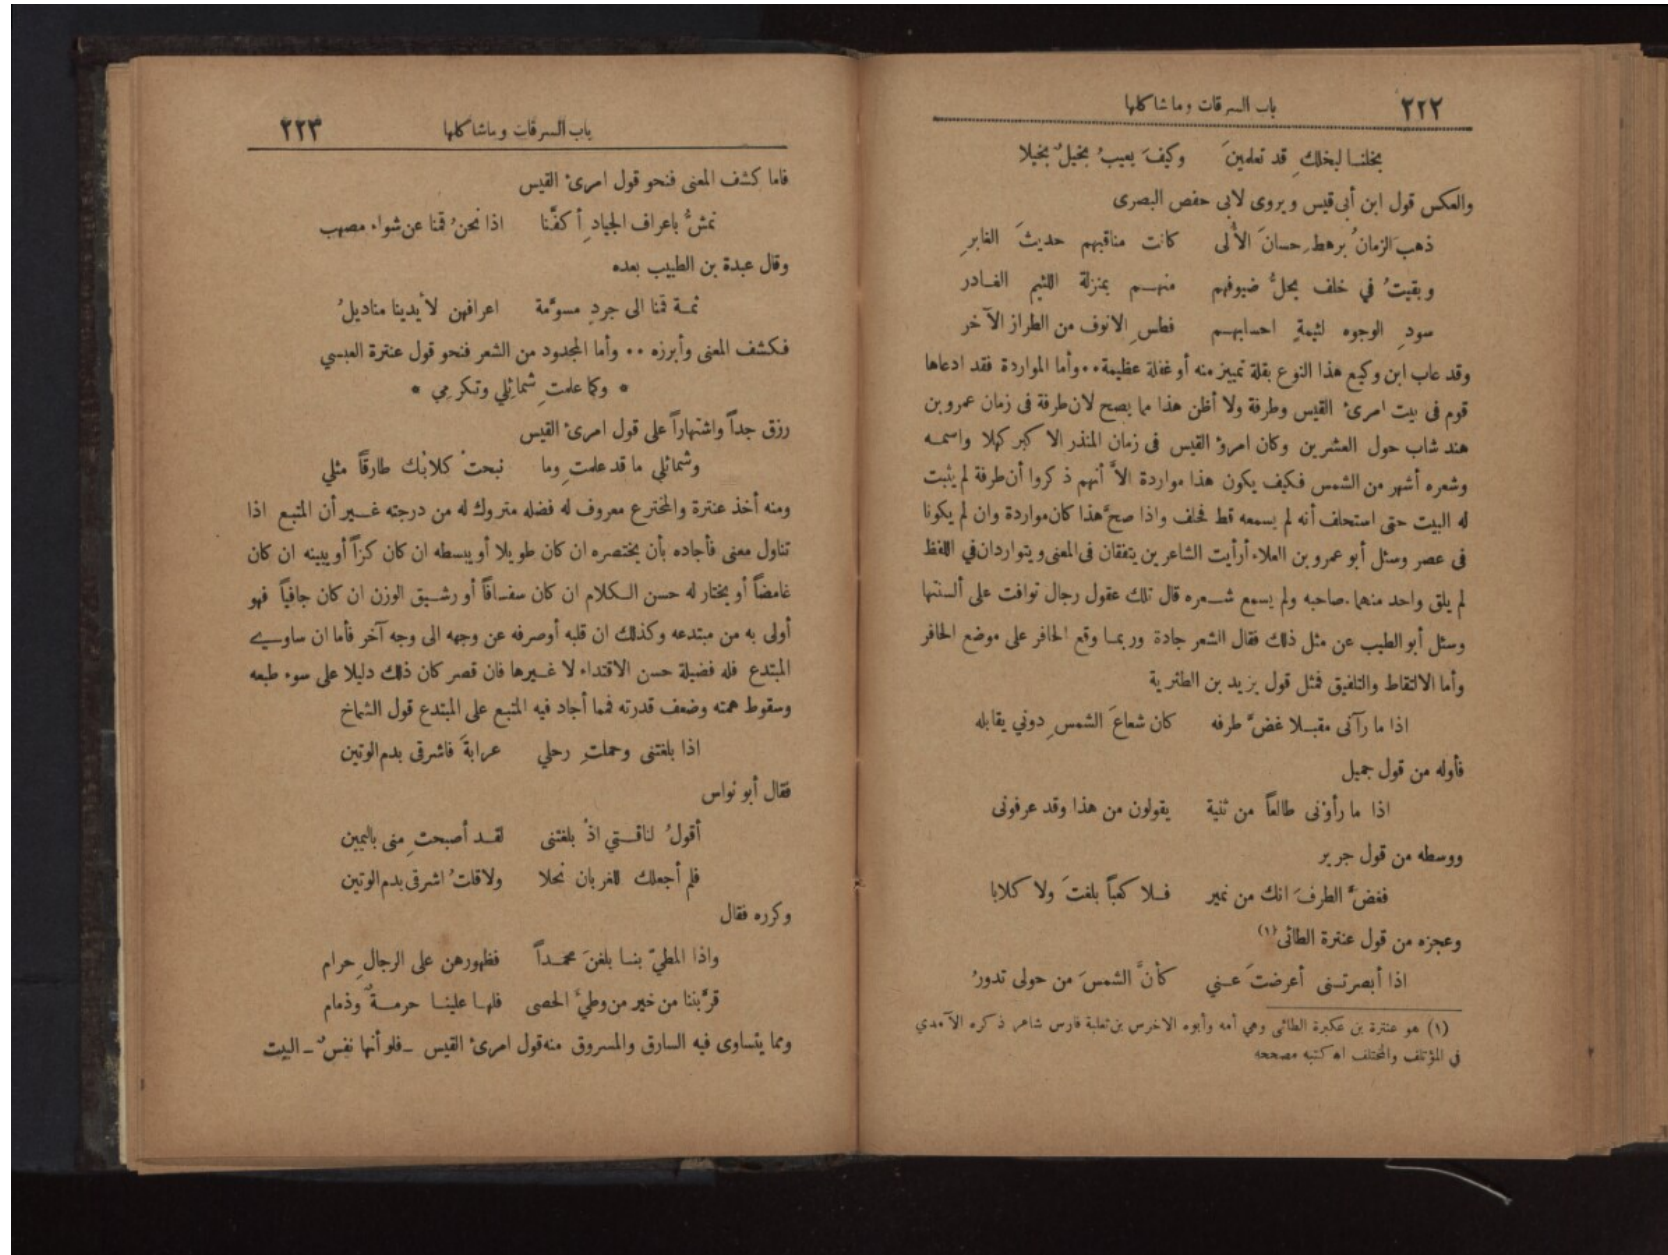 ٢٢٢
باب السرقات وما شاكلها
بخلنا لبخلكِ قد تعلمينَ وكيفَ يعيبُ بخيلٌ بخيلا
والعكس قول ابن أبى قيس ويروى لابى حفص البصرى
ذهب الزمانُ برهطِ حسانَ الأُلى كانت مناقبهم حديثَ الغابرِ
وبقيتُ في خلف يحلُّ ضيوفهم منهم بمنزلة اللئيم الغادر
سودِ الوجوه لئيمةٍ احسابهم فطسِ الانوف من الطراز الآخر
وقد عاب ابن وكيع هذا النوع بقلة تمييز منه أو غفلة عظيمة ٠٠ وأما المواردة فقد ادعاها
قوم فى بيت امرئ القيس وطرفة ولا أظن هذا مما يصح لان طرفة فى زمان عمرو بن
هند شاب حول العشرين وكان امرؤ القيس فى زمان المنذر الا كبر كهلا واسمه
وشعره أشهر من الشمس فكيف يكون هذا مواردة الاَّ أنهم ذكروا أن طرفة لم يثبت
له البيت حتى استحلف أنه لم يسمعه قط فحلف واذا صحَّ هذا كان مواردة وان لم يكونا
فى عصر وسئل أبو عمرو بن العلاء أرأيت الشاعرين يتفقان فى المعنى ويتواردان في اللفظ
لم يلق واحد منهما صاحبه ولم يسمع شعره قال تلك عقول رجال توافت على ألسنتها
وسئل أبو الطيب عن مثل ذلك فقال الشعر جادة وربما وقع الحافر على موضع الحافر
وأما الالتقاط والتلفيق فمثل قول يزيد بن الطثرية
اذا ما رآنى مقبلا غضَّ طرفه كان شعاعَ الشمسِ دوني يقابله
فأوله من قول جميل
اذا ما رأوْنى طالعاً من ثنية يقولون من هذا وقد عرفونى
ووسطه من قول جرير
فغضَّ الطرفَ انك من نمير فلا كعباً بلغتَ ولا كلابا
وعجزه من قول عنترة الطائى (١)
اذا أبصرتنى أعرضتَ عني كأنَّ الشمسَ من حولى تدورُ
(١) هو عنترة بن عكبرة الطائى وهي أمه وأبوه الاخرس بن ثعلبة فارس شاعر ذكره الآمدي
في المؤتلف والمختلف اه كتبه مصححه
باب السرقات وما شاكلها
٢٢٣
فاما كشف المعنى فنحو قول امرئ القيس
نمشُّ باعراف الجيادِ أكفَّنا اذا نحنُ قمنا عن شواء مصهب
وقال عبدة بن الطبيب بعده
ثمة قمنا الى جردٍ مسوَّمة اعرافهن لأيدينا مناديلُ
فكشف المعنى وأبرزه ٠٠ وأما المجدود من الشعر فنحو قول عنترة العبسي
* وكما علمتِ شمائِلي وتكرمِي *
رزق جداً واشتهاراً على قول امرئ القيس
وشمائلي ما قد علمتِ وما نبحتْ كلابُك طارقاً مثلي
ومنه أخذ عنترة والمخترع معروف له فضله متروك له من درجته غير أن المتبع اذا
تناول معنى فأجاده بأن يختصره ان كان طويلا أو يبسطه ان كان كزاً أو يبينه ان كان
غامضاً أو يختار له حسن الكلام ان كان سفسافاً أو رشيق الوزن ان كان جافياً فهو
أولى به من مبتدعه وكذلك ان قلبه أو صرفه عن وجهه الى وجه آخر فأما ان ساوى
المبتدع فله فضيلة حسن الاقتداء لا غيرها فان قصر كان ذلك دليلا على سوء طبعه
وسقوط همته وضعف قدرته فمما أجاد فيه المتبع على المبتدع قول الشماخ
اذا بلغتنى وحملتِ رحلي عرابةَ فاشرقى بدم الوتين
فقال أبو نواس
أقولُ لناقتي اذْ بلغتنى لقد أصبحتِ منى باليمين
فلم أجعلك للغربان نحلا ولا قلتُ اشرقى بدم الوتين
وكرره فقال
واذا المطيّ بنا بلغنَ محمداً فظهورهن على الرجالِ حرام
قرَّبننا من خير من وطيَّ الحصى فلها علينا حرمةٌ وذمام
ومما يتساوى فيه السارق والمسروق منه قول امرئ القيس ــ فلو أنها نفسٌ ــ البيت